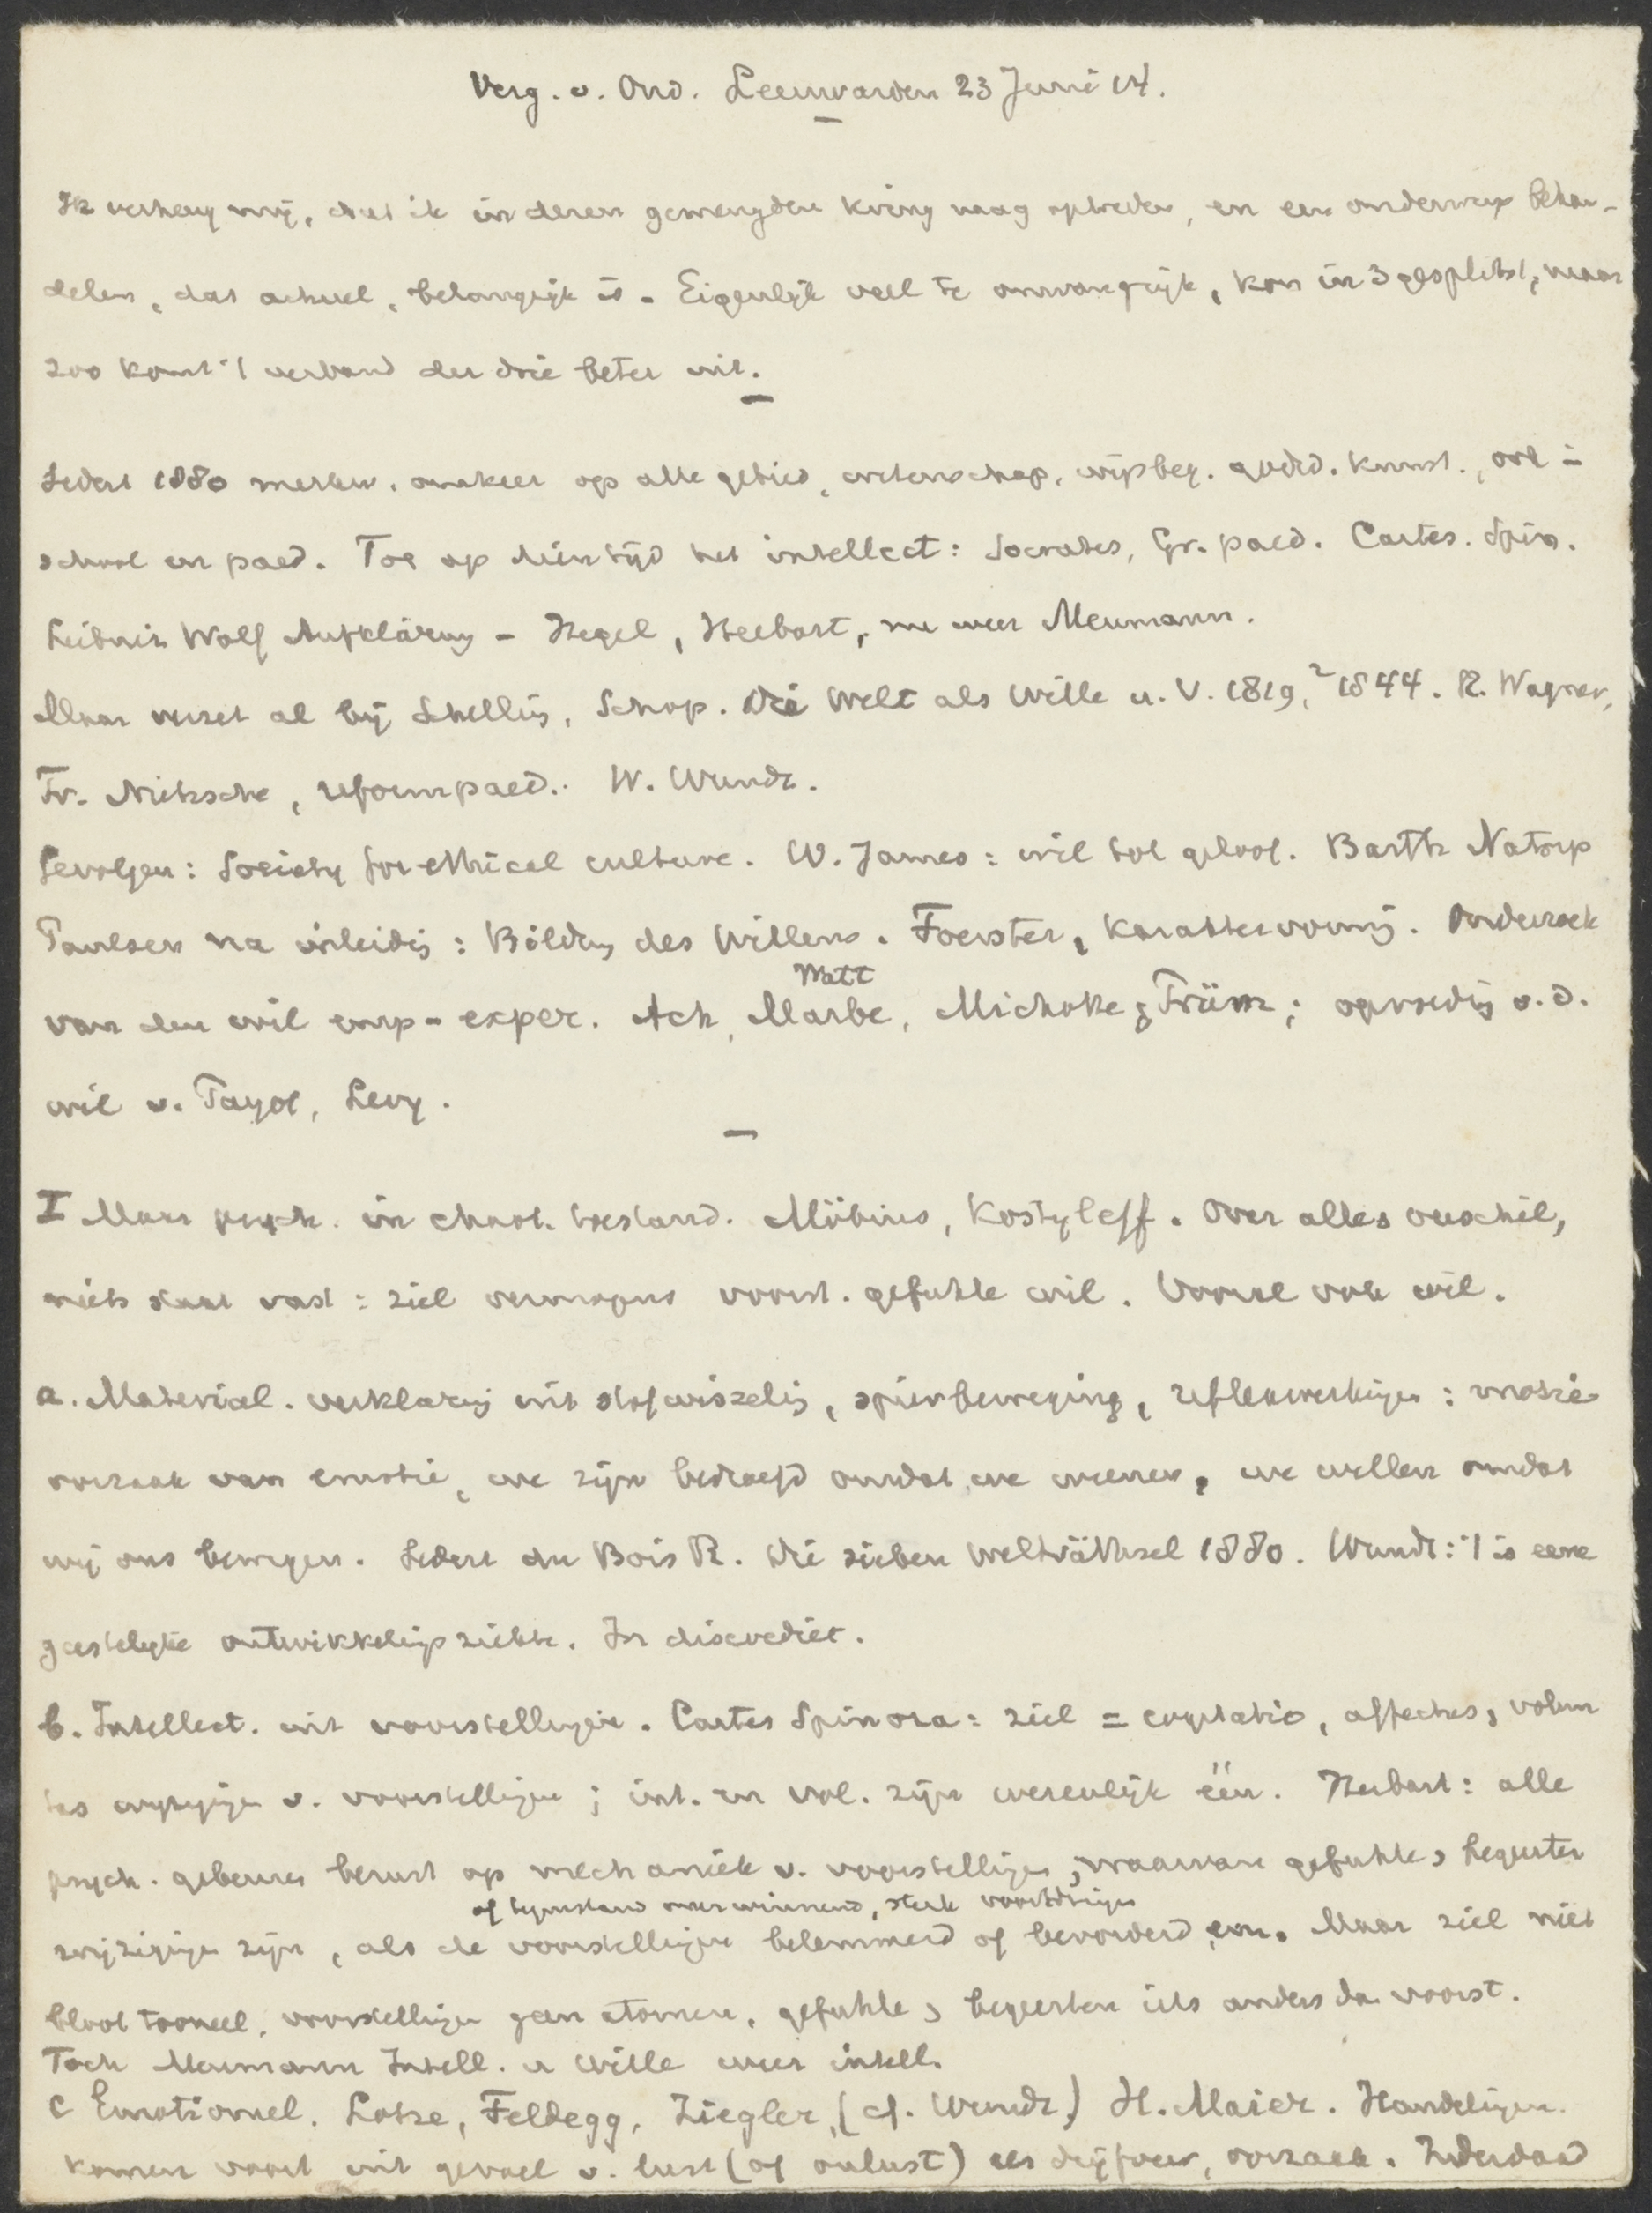 Verg. v. Ond. Leeuwarden 23 Juni 14.
Ik verheug mij, dat ik in dezen gemengden kring mag optreden, en een onderwerp behan-
delen, dat actueel, belangrijk is. Eigenlijk veel te omvangrijk, kon in 3 gesplitst, maar
zoo komt 't verband der drie beter uit.
Sedert 1880 merkw. omkeer op alle gebied, wetenschap, wijsbeg. godsd. kunst., ook in
school en paed. Toe op dien tijd het intellect: Socrates, Gr. paed. Cartes. Spin.
Leibniz Wolf Aufklärung - Hegel, Herbart, nu weer Meumann.
Maar verzet al bij Schelling, Schop. Die Welt als Wille u. V. 1819, ²1844. R. Wagner,
Fr. Nietzsche, reformpaed. W. Wundt.
Gevolgen: Society for ethical culture. W. James: wil tot geloof. Barth Natorp
Paulsen na inleidg: Bildung des Willens. Foerster, karaktervormg. Onderzoek
Watt
van den wil emp-exper. Ach, Marbe, Michotte, Prüm; opvoedig v. d.
wil v. Payot, Levy.
I Maar psych. in chaot. toestand. Möbius, Kostyleff. Over alles verschil,
niets staat vast: ziel vermogens voorst. gefühle wil. Vooral ook wil.
a. Material. verklarig uit stofwisselig, spierbeweging, reflexwerkingen: motie
oorzaak van emotie, we zijn bedroefd omdat we weenen, we willen omdat
wij ons bewegen. Sedert du Bois R. Die sieben Welträthsel 1880. Wundt: 't is eene
geestelijke ontwikkeligsziekte. In discrediet.
b. Intellect. uit voorstellingen. Cartes Spinoza: ziel = cogitatio, affectus, volun
tas wijzigigen v. voorstelligen; int. en vol. zijn wezenlijk één. Herbart: alle
psych. gebeuren berust op mechaniek v. voorstelligen, waarvan gefühle, begeerten
of tegenstand overwinnend, sterk voortdringen
wijzigigen zijn, als de voorstelligen belemmerd of bevorderd en. Maar ziel niet
bloot tooneel, voorstelligen geen atomen, gefühle, begeerten iets anders dan voorst.
Toch Meumann Intell. u Wille weer intell.
c Emotioneel. Lotze, Feldegg, Ziegler, (cf. Wundt) H. Maier. Handeligen
komen voort uit gevoel v. lust (of onlust) als drijfveer, oorzaak. Inderdaad